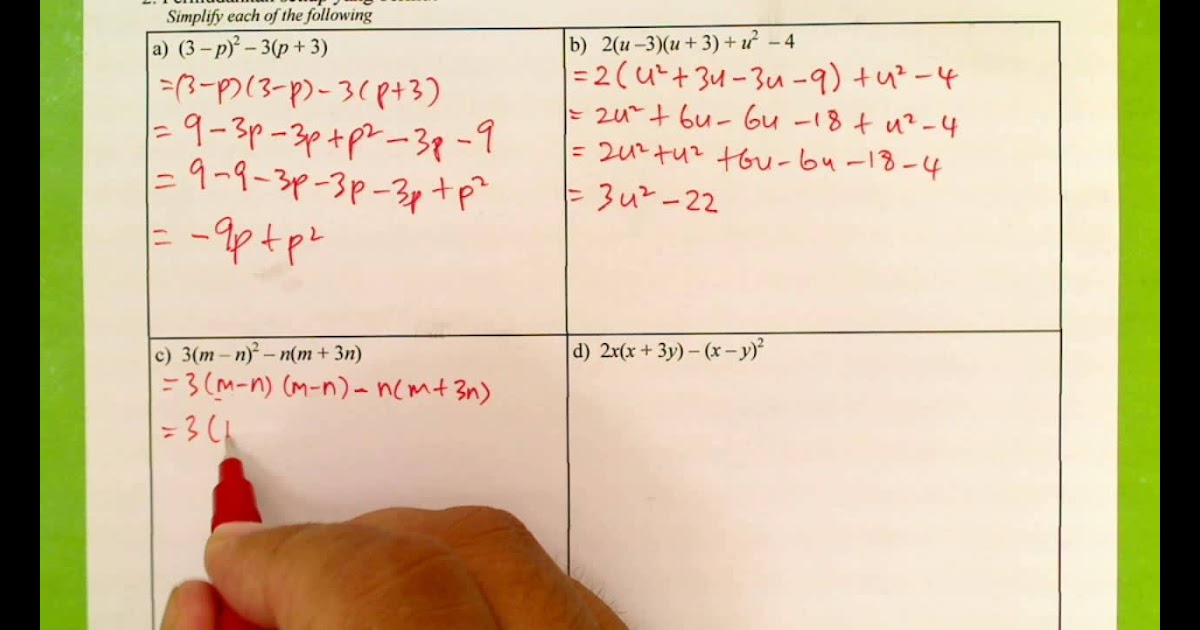 Simplify each of the following
a) (3 – p)² – 3(p + 3)
=(3-p)(3-p)-3(p+3)
= 9-3p-3p+p²-3p-9
= 9-9-3p-3p-3p+p²
= -9p+p²
b) 2(u –3)(u + 3) + u² – 4
=2(u²+3u-3u-9)+u²-4
= 2u²+6u-6u-18+u²-4
= 2u²+u²+6u-6u-18-4
= 3u²-22
c) 3(m – n)² – n(m + 3n)
=3(m-n)(m-n)-n(m+3n)
=3(
d) 2x(x + 3y) – (x – y)²